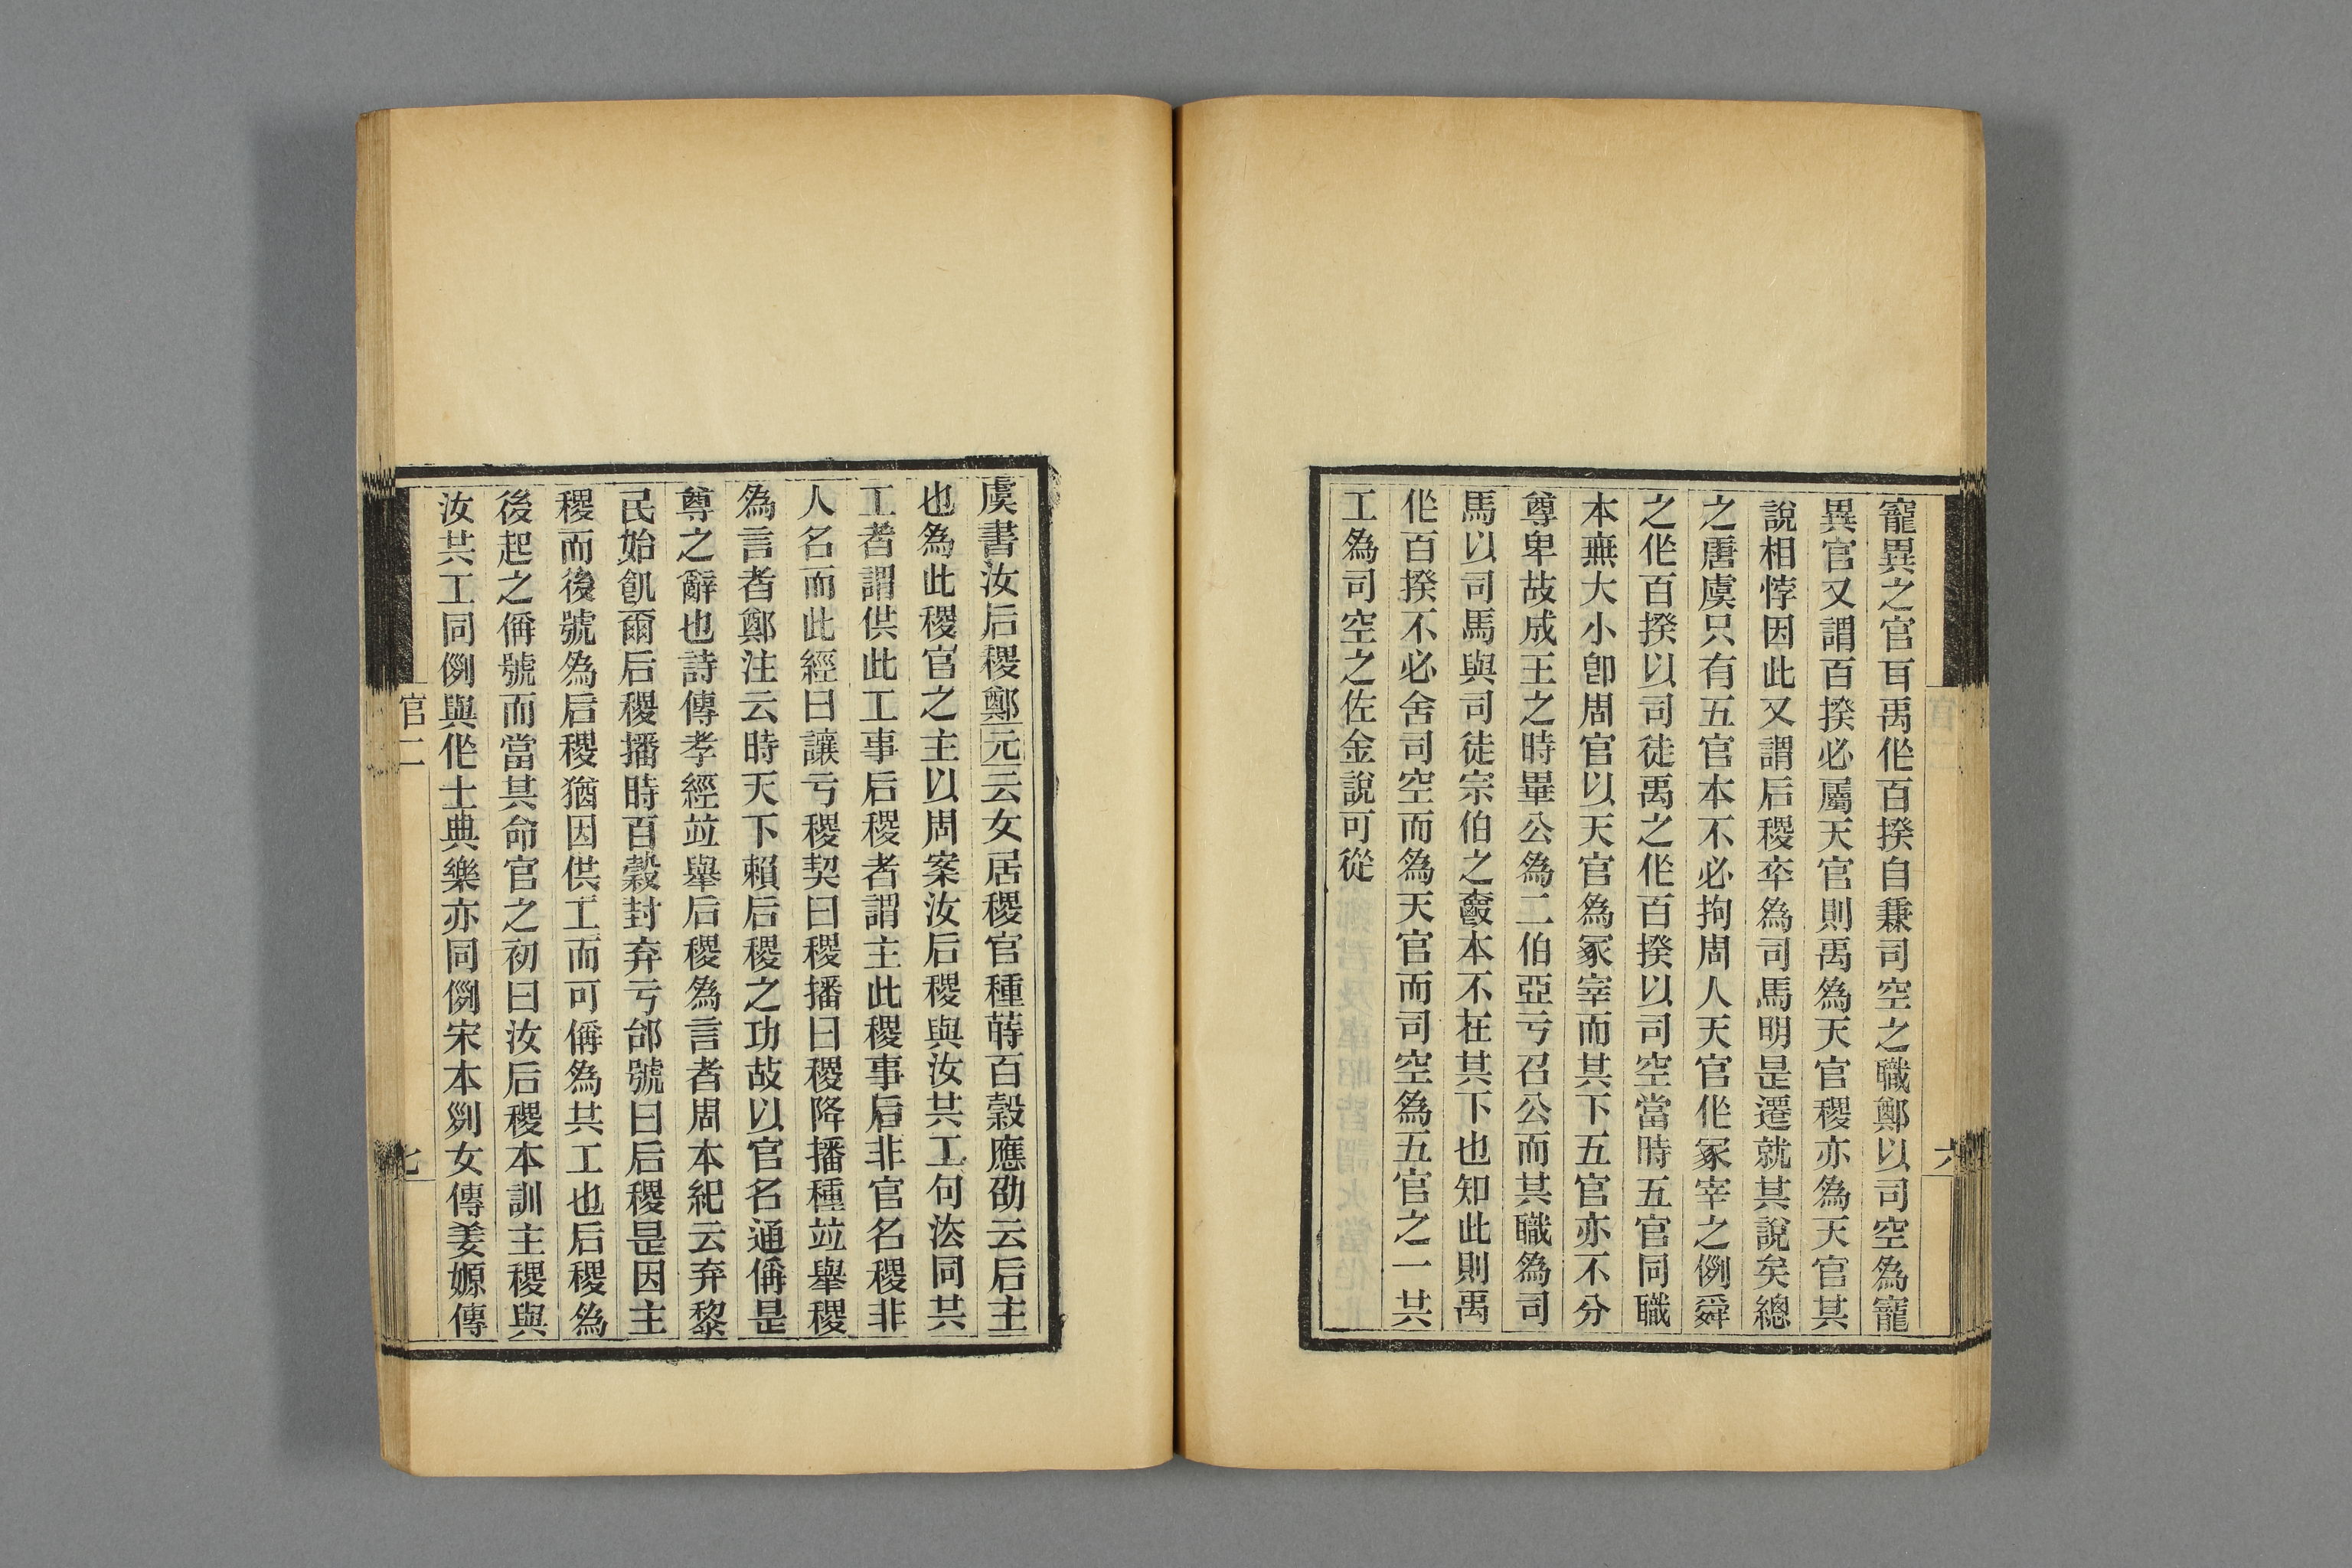 寵異之官耳禹作百揆自兼司空之職鄭以司空為寵
異官又謂百揆必屬天官則禹為天官稷亦為天官其
說相悖因此又謂后稷卒為司馬明是遷就其說矣總
之唐虞只有五官本不必拘周人天官作冢宰之例舜
之作百揆以司徒禹之作百揆以司空當時五官同職
本無大小卽周官以天官為冢宰而其下五官亦不分
尊卑故成王之時畢公為二伯亞亏召公而其職為司
馬以司馬與司徒宗伯之職本不在其下也知此則禹
作百揆不必舍司空而為天官而司空為五官之一共
工為司空之佐金說可從
六
虞書汝后稷鄭元云女居稷官種蒔百穀應劭云后主
也為此稷官之主以周案汝后稷與汝共工句法同共
工者謂供此工事后稷者謂主此稷事后非官名稷非
人名而此經曰讓亏稷契曰稷播曰稷降播種竝舉稷
為言者鄭注云時天下賴后稷之功故以官名通偁是
尊之辭也詩傳孝經竝舉后稷為言者周本紀云弃黎
民始飢爾后稷播時百穀封弃亏邰號曰后稷是因主
稷而後號為后稷猶因供工而可偁為共工也后稷為
後起之偁號而當其命官之初曰汝后稷本訓主稷與
汝共工同例與作士典樂亦同例宋本列女傳姜嫄傳
官二
七